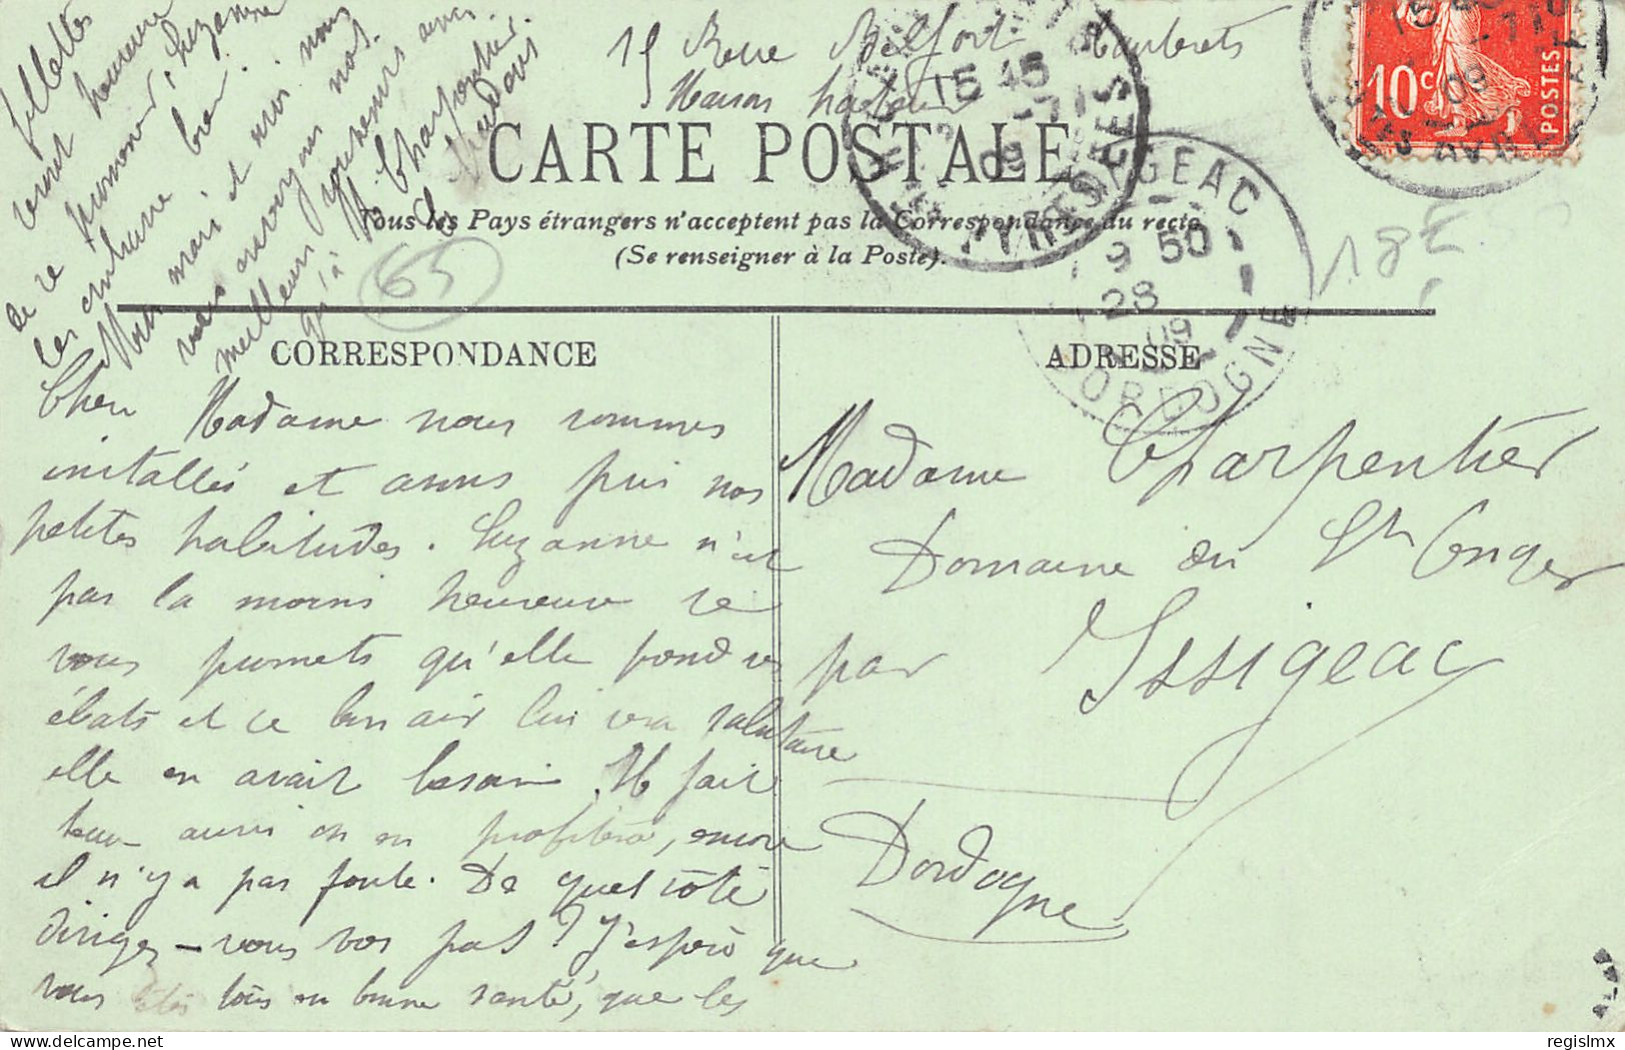 15 Rue Belfort
Maison
CARTE POSTALE
Tous les Pays étrangers n'acceptent pas la Correspondance au recto
(Se renseigner à la Poste).
10c
POSTES
15 45
09
ISSIGEAC
9 50
28
09
DORDOGNE
18 €
65
CORRESPONDANCE
ADRESSE
Cher Madame nous sommes
installés et avons pris nos
petites habitudes. Suzanne n'est
pas la moins heureuse je
vous promets qu'elle prend ses
ébats et ce bon air lui sera salutaire
elle en avait besoin. Il fait
beau aussi on en profitera, encore
il n'y a pas foule. De quel côté
dirigez-vous vos pas? J'espère que
vous êtes tous en bonne santé, que les
fillettes
seront heureuse
de se promener, Suzanne
les entraîne bien
Mon mari et moi nous
vous envoyons nos
meilleurs souvenirs ainsi
qu'à M Charpentier
Madame Charpentier
Domaine du St Conger
par Issigeac
Dordogne
regislmx